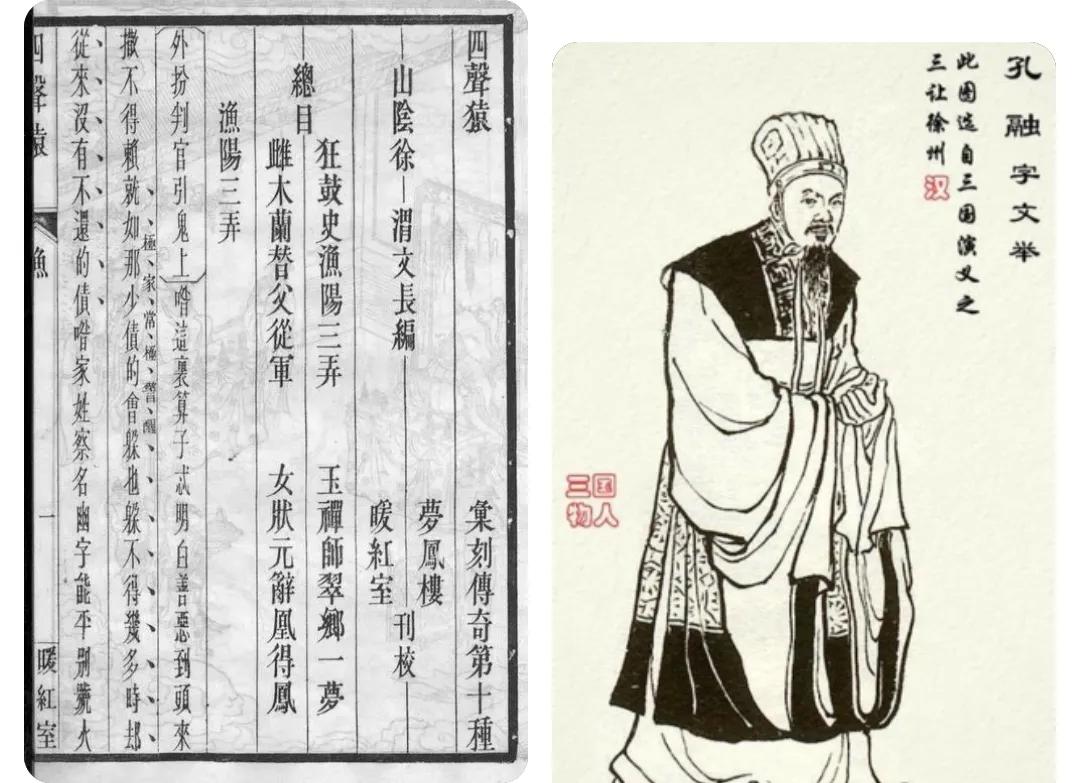 四聲猿 彙刻傳奇第十種
山陰徐渭文長編 夢鳳樓 暖紅室 刊校
總目
狂鼓史漁陽三弄 玉禪師翠鄉一夢
雌木蘭替父從軍 女狀元辭凰得鳳
漁陽三弄
外扮判官引鬼上 喒這裏算子忒明白善惡到頭來
極、家常、極、警醒
撒不得賴就如那少債的會躲也躲不得幾多時却
從來沒有不還的債喒家姓察名幽字能平別號火
四聲猿 漁 一 暖紅室
孔融字文举
此图选自三国演义之
三让徐州
汉
三国人物